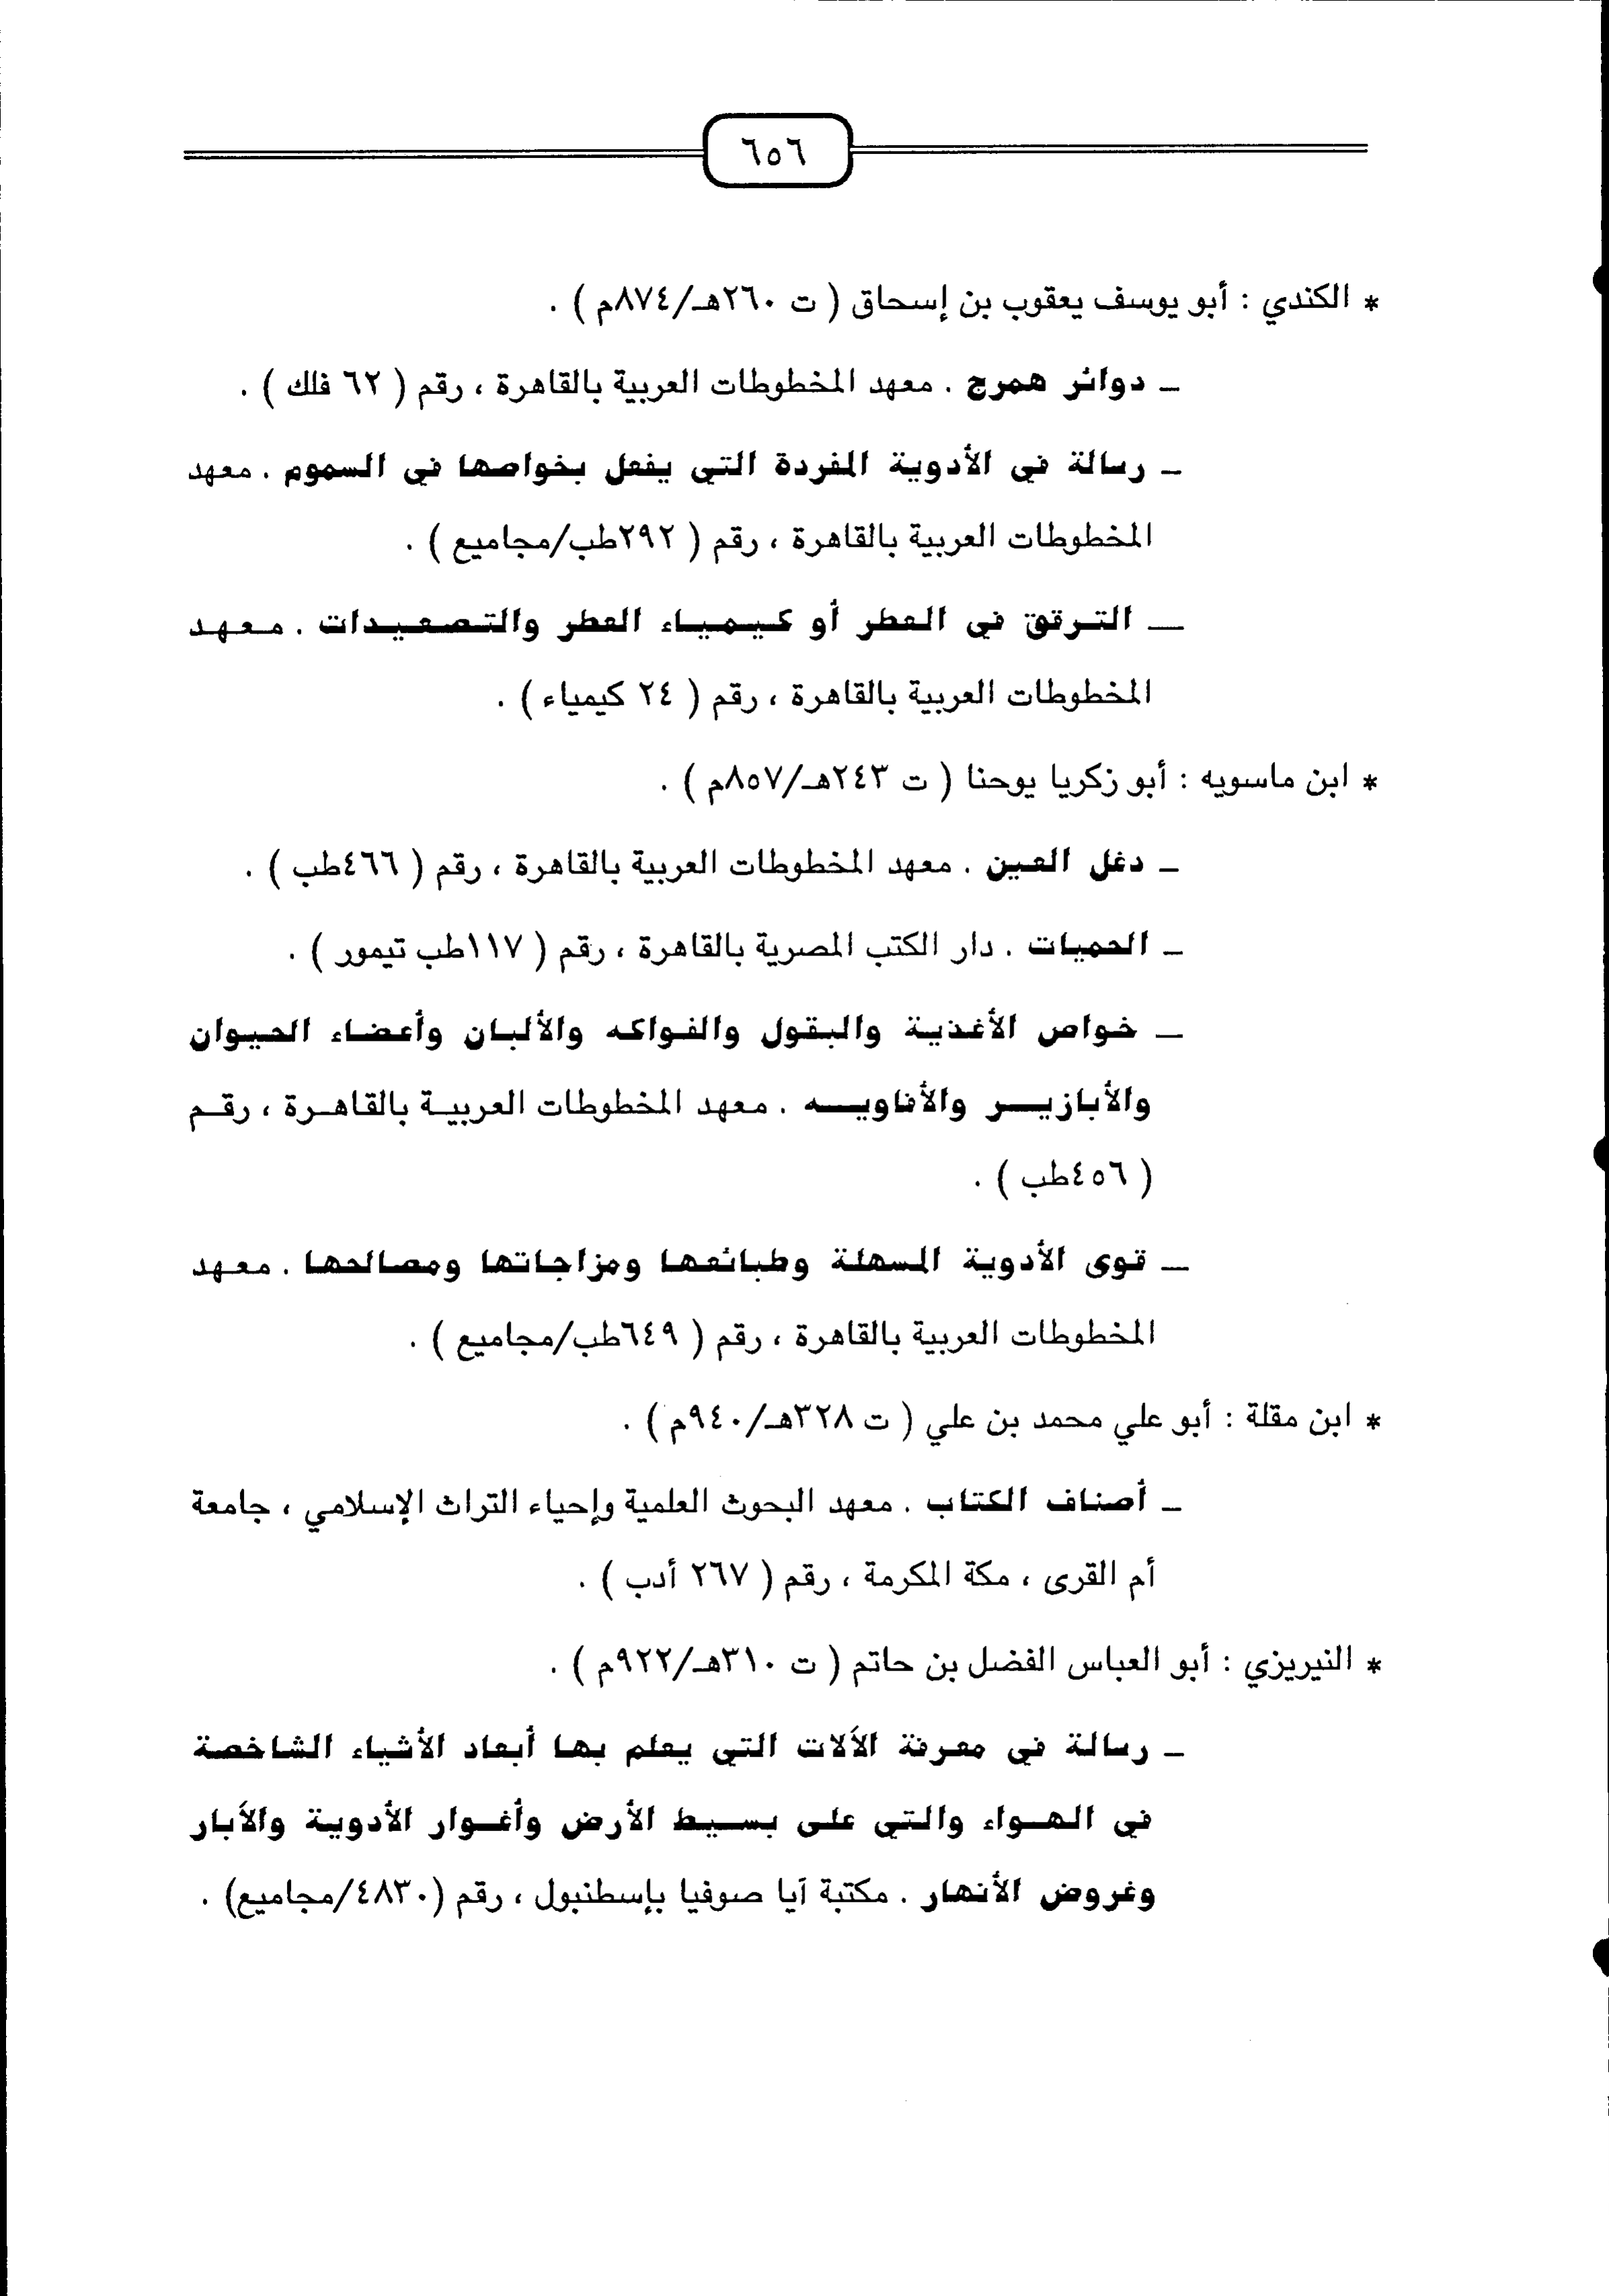 ٦٥٦
* الكندي : أبو يوسف يعقوب بن إسحاق ( ت ٢٦٠هـ/٨٧٤م ) .
ـ دوائر همرج . معهد المخطوطات العربية بالقاهرة ، رقم ( ٦٢ فلك ) .
ـ رسالة في الأدوية المفردة التي يفعل بخواصها في السموم . معهد
المخطوطات العربية بالقاهرة ، رقم ( ٢٩٢طب/مجاميع ) .
ـ الترقق في العطر أو كيمياء العطر والتصعيدات . معهد
المخطوطات العربية بالقاهرة ، رقم ( ٢٤ كيمياء ) .
* ابن ماسويه : أبو زكريا يوحنا ( ت ٢٤٣هـ/٨٥٧م ) .
ـ دغل العين . معهد المخطوطات العربية بالقاهرة ، رقم ( ٤٦٦طب ) .
ـ الحميات . دار الكتب المصرية بالقاهرة ، رقم ( ١١٧طب تيمور ) .
ـ خواص الأغذية والبقول والفواكه والألبان وأعضاء الحيوان
والأبازير والأفاويه . معهد المخطوطات العربية بالقاهرة ، رقم
( ٤٥٦طب ) .
ـ قوى الأدوية المسهلة وطبائعها ومزاجاتها ومصالحها . معهد
المخطوطات العربية بالقاهرة ، رقم ( ٦٤٩طب/مجاميع ) .
* ابن مقلة : أبو علي محمد بن علي ( ت ٣٢٨هـ/٩٤٠م ) .
ـ أصناف الكتاب . معهد البحوث العلمية وإحياء التراث الإسلامي ، جامعة
أم القرى ، مكة المكرمة ، رقم ( ٢٦٧ أدب ) .
* النيريزي : أبو العباس الفضل بن حاتم ( ت ٣١٠هـ/٩٢٢م ) .
ـ رسالة في معرفة الآلات التي يعلم بها أبعاد الأشياء الشاخصة
في الهواء والتي على بسيط الأرض وأغوار الأدوية والآبار
وغروض الأنهار . مكتبة آيا صوفيا بإسطنبول ، رقم (٤٨٣٠/مجاميع) .